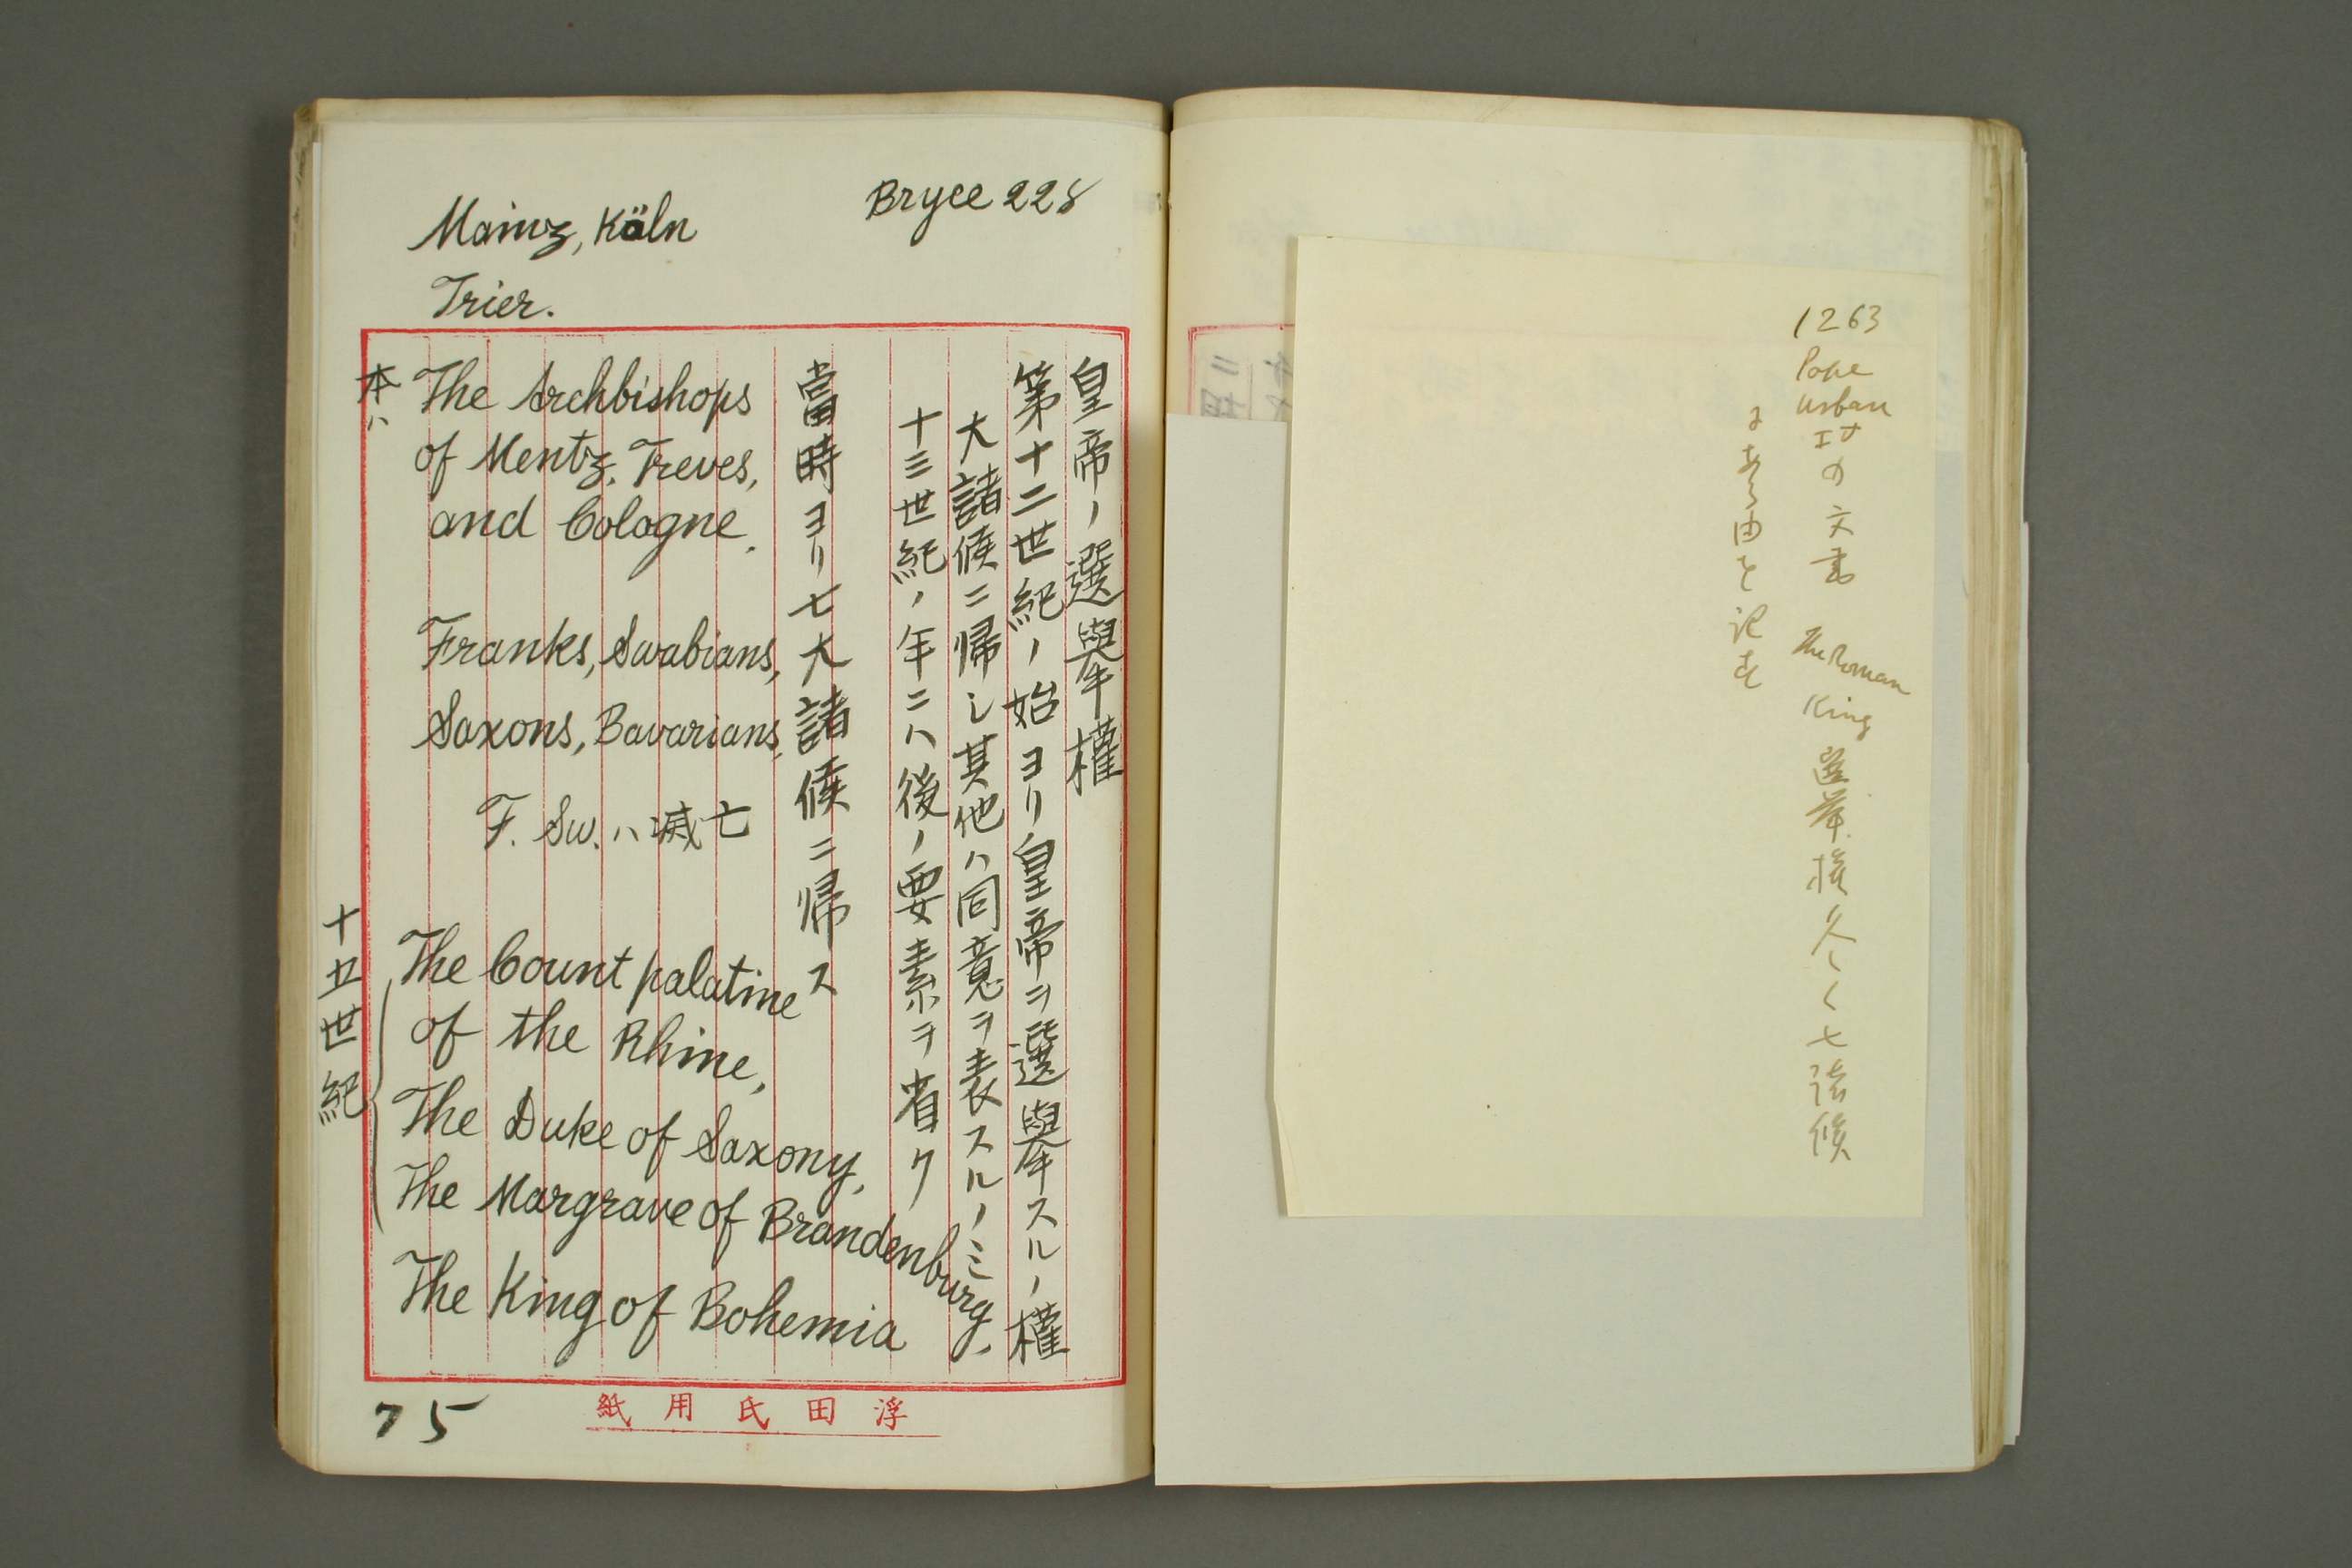 1263
Pope
Urban
の文書
The Roman
King
選挙権久しく七諸侯
にある由を説き
Bryce 228
Mainz, Köln
Trier.
皇帝ノ選擧權
第十二世紀ノ始ヨリ皇帝ヲ選擧スルノ權
大諸候ニ帰シ其他ハ同意ヲ表スルノミ
十三世紀ノ年ニハ後ノ要素ヲ省ク
當時ヨリ七大諸候ニ帰ス
The Archbishops
of Mentz, Treves,
and Cologne.
本ハ
Franks, Swabians,
Saxons, Bavarians.
F. Sw. ハ滅亡
十五世紀
The Count palatine
of the Rhine,
The Duke of Saxony,
The Margrave of Brandenburg.
The King of Bohemia
75
浮田氏用紙